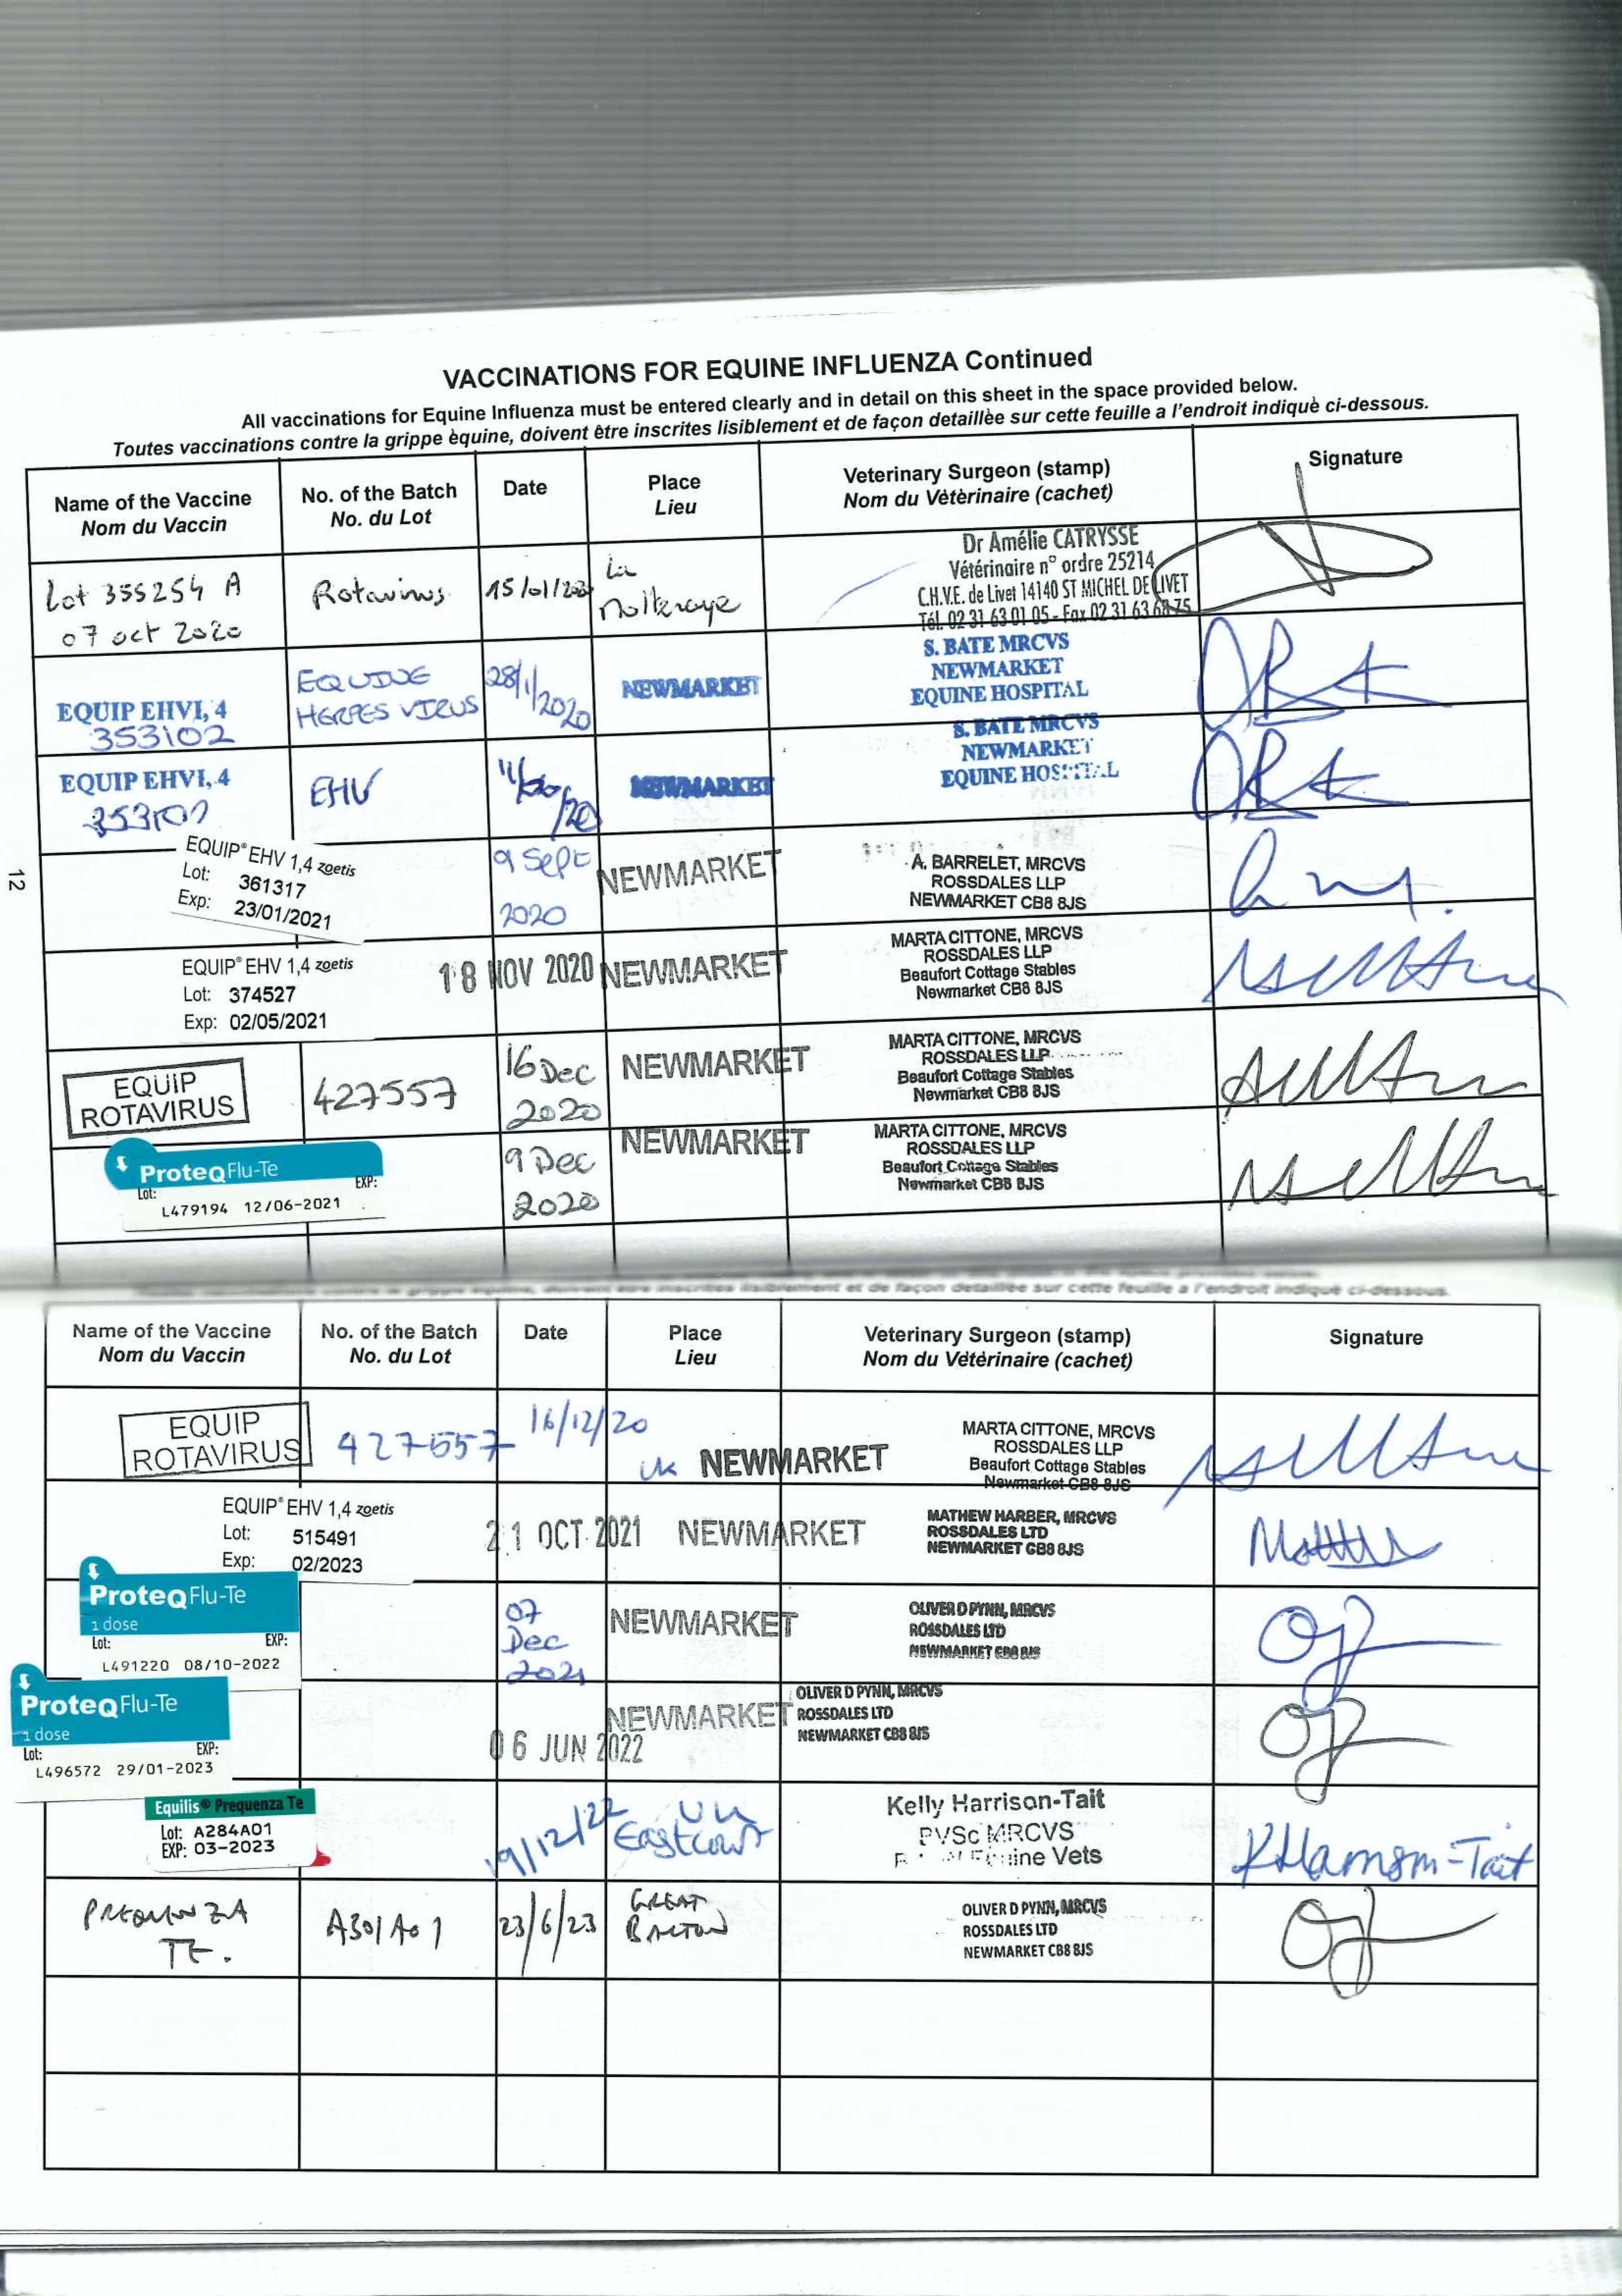 VACCINATIONS FOR EQUINE INFLUENZA Continued
All vaccinations for Equine Influenza must be entered clearly and in detail on this sheet in the space provided below.
Toutes vaccinations contre la grippe èquine, doivent être inscrites lisiblement et de façon detaillèe sur cette feuille a l'endroit indiquè ci-dessous.
Name of the Vaccine
Nom du Vaccin
No. of the Batch
No. du Lot
Date
Place
Lieu
Veterinary Surgeon (stamp)
Nom du Vètèrinaire (cachet)
Signature
Lot 355254 A
07 oct 2020
Rotavirus
15/01/2020
La
Dr Amélie CATRYSSE
Vétérinaire n° ordre 25214
C.H.V.E. de Livet 14140 ST MICHEL DE LIVET
Tél. 02 31 63 01 05 - Fax 02 31 63 68 75
EQUIP EHVI, 4
353102
EQUINE
HERPES VIRUS
28/1/2020
NEWMARKET
S. BATE MRCVS
NEWMARKET
EQUINE HOSPITAL
EQUIP EHVI, 4
EHV
NEWMARKET
S. BATE MRCVS
NEWMARKET
EQUINE HOSPITAL
12
EQUIP® EHV 1,4 zoetis
Lot: 361317
Exp: 23/01/2021
9 Sept
2020
NEWMARKET
A. BARRELET, MRCVS
ROSSDALES LLP
NEWMARKET CB8 8JS
EQUIP® EHV 1,4 zoetis
Lot: 374527
Exp: 02/05/2021
18 NOV 2020
NEWMARKET
MARTA CITTONE, MRCVS
ROSSDALES LLP
Beaufort Cottage Stables
Newmarket CB8 8JS
EQUIP
ROTAVIRUS
427557
16 Dec
2020
NEWMARKET
MARTA CITTONE, MRCVS
ROSSDALES LLP
Beaufort Cottage Stables
Newmarket CB8 8JS
ProteqFlu-Te
Lot: EXP:
L479194 12/06-2021
9 Dec
2020
NEWMARKET
MARTA CITTONE, MRCVS
ROSSDALES LLP
Beaufort Cottage Stables
Newmarket CB8 8JS
inscrites lisiblement et de façon detaillée sur cette feuille a l'endroit indiqué ci-dessous.
Name of the Vaccine
Nom du Vaccin
No. of the Batch
No. du Lot
Date
Place
Lieu
Veterinary Surgeon (stamp)
Nom du Vètèrinaire (cachet)
Signature
EQUIP
ROTAVIRUS
427557
16/12/20
UK NEWMARKET
MARTA CITTONE, MRCVS
ROSSDALES LLP
Beaufort Cottage Stables
Newmarket CB8 8JS
EQUIP® EHV 1,4 zoetis
Lot: 515491
Exp: 02/2023
21 OCT 2021
NEWMARKET
MATHEW HARBER, MRCVS
ROSSDALES LTD
NEWMARKET CB8 8JS
ProteqFlu-Te
1 dose
Lot: EXP:
L491220 08/10-2022
07
Dec
2021
NEWMARKET
OLIVER D PYNN, MRCVS
ROSSDALES LTD
NEWMARKET CB8 8JS
ProteqFlu-Te
1 dose
Lot: EXP:
L496572 29/01-2023
06 JUN 2022
NEWMARKET
OLIVER D PYNN, MRCVS
ROSSDALES LTD
NEWMARKET CB8 8JS
Equilis® Prequenza Te
Lot: A284A01
EXP: 03-2023
19/12/22
Kelly Harrison-Tait
BVSc MRCVS
Equine Vets
KHarrison-Tait
PREQUENZA
TE.
A301A01
23/6/23
GREAT
BARTON
OLIVER D PYNN, MRCVS
ROSSDALES LTD
NEWMARKET CB8 8JS